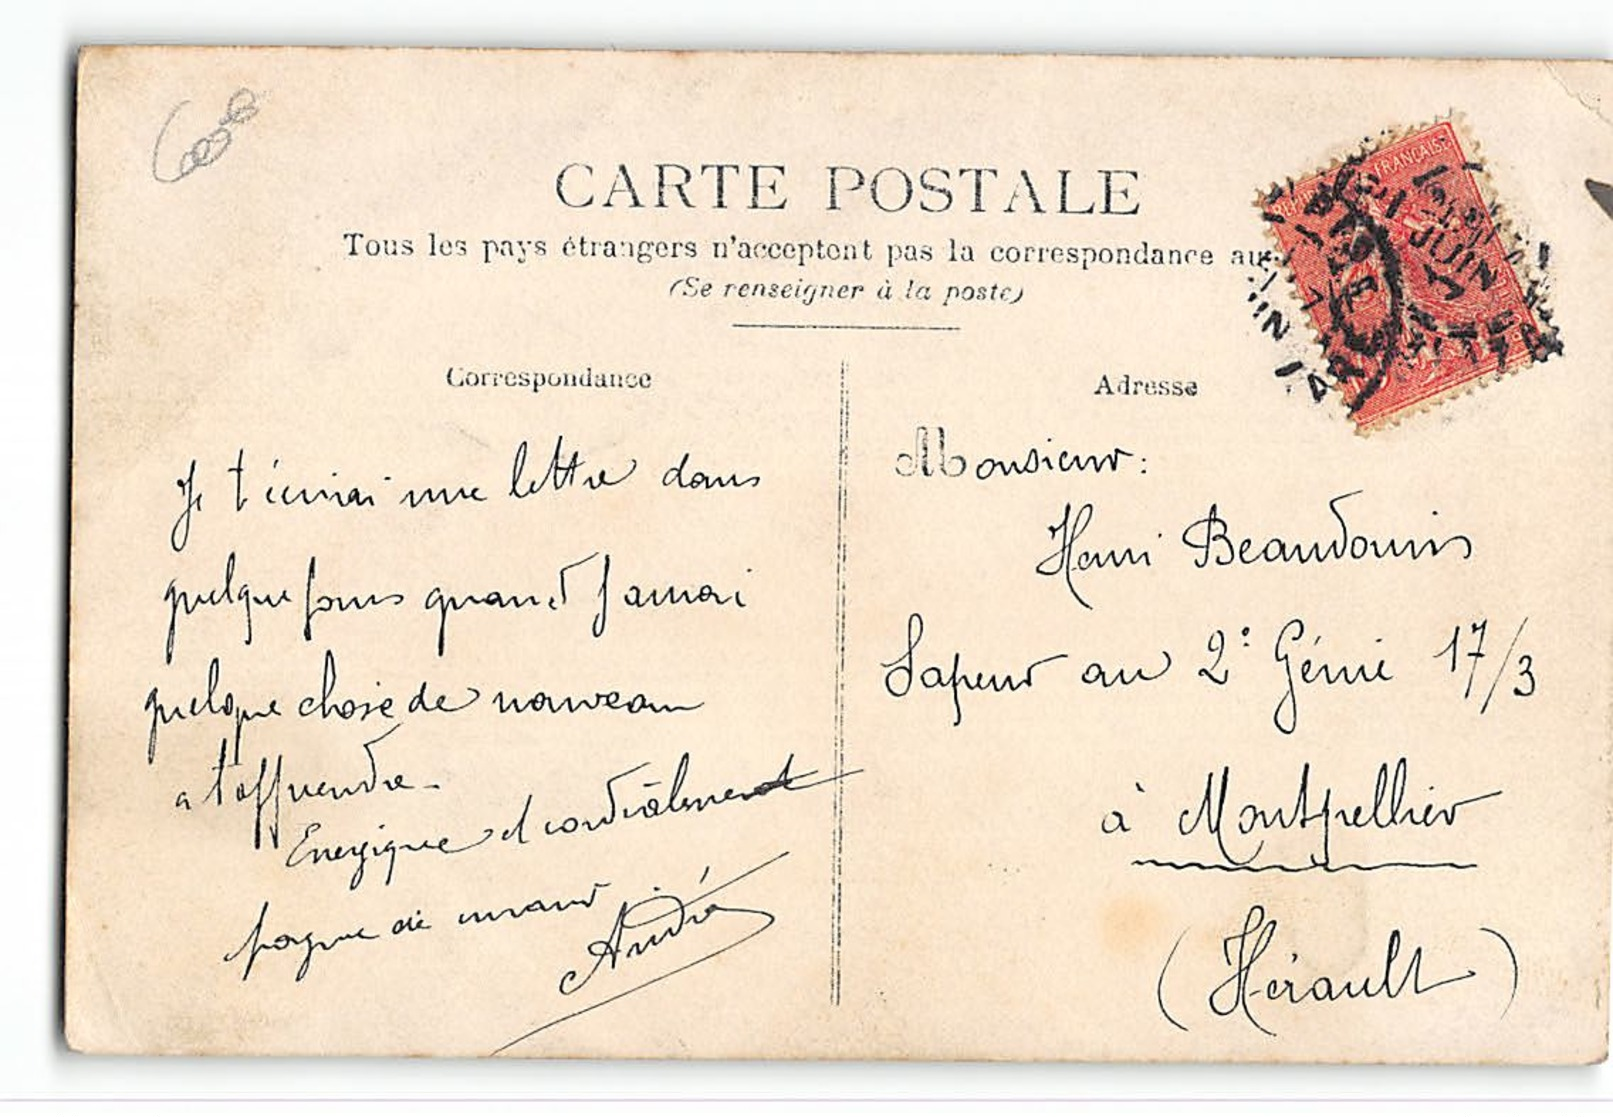 CARTE POSTALE
Tous les pays étrangers n'acceptent pas la correspondance au
(Se renseigner à la poste)
Correspondance
Adresse
FRANÇAISE
JUIN
Je t'écrirai une lettre dans
quelque jours quand J'aurai
quelque chose de nouveau
a t'apprendre.
Energique et cordiale
poigne de
André
Monsieur:
Henri Beaudouin
Sapeur au 2e Génie 17/3
à Montpellier
(Hérault)